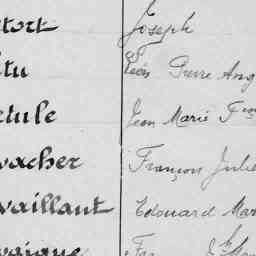 tort Joseph
tu Léon Pierre Ang
etule Jean Marie Fçois
vacher François Julie
vaillant Edouard Mar